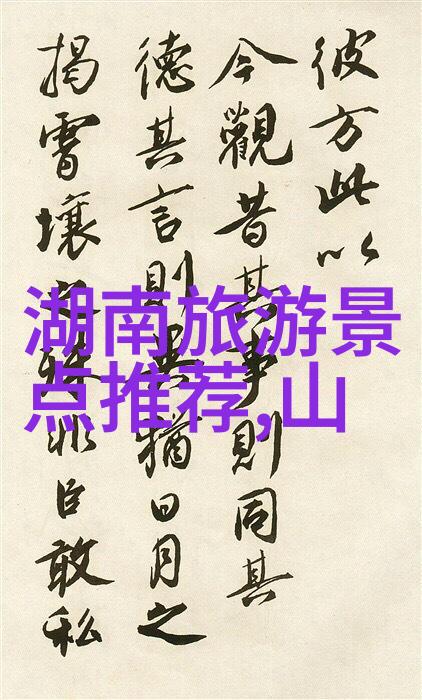 彼方此以
今觀昔其事則同其
德其言則異猶日月之
揭霄壤之殊非臣敢私
湖南旅游景
点推荐,山